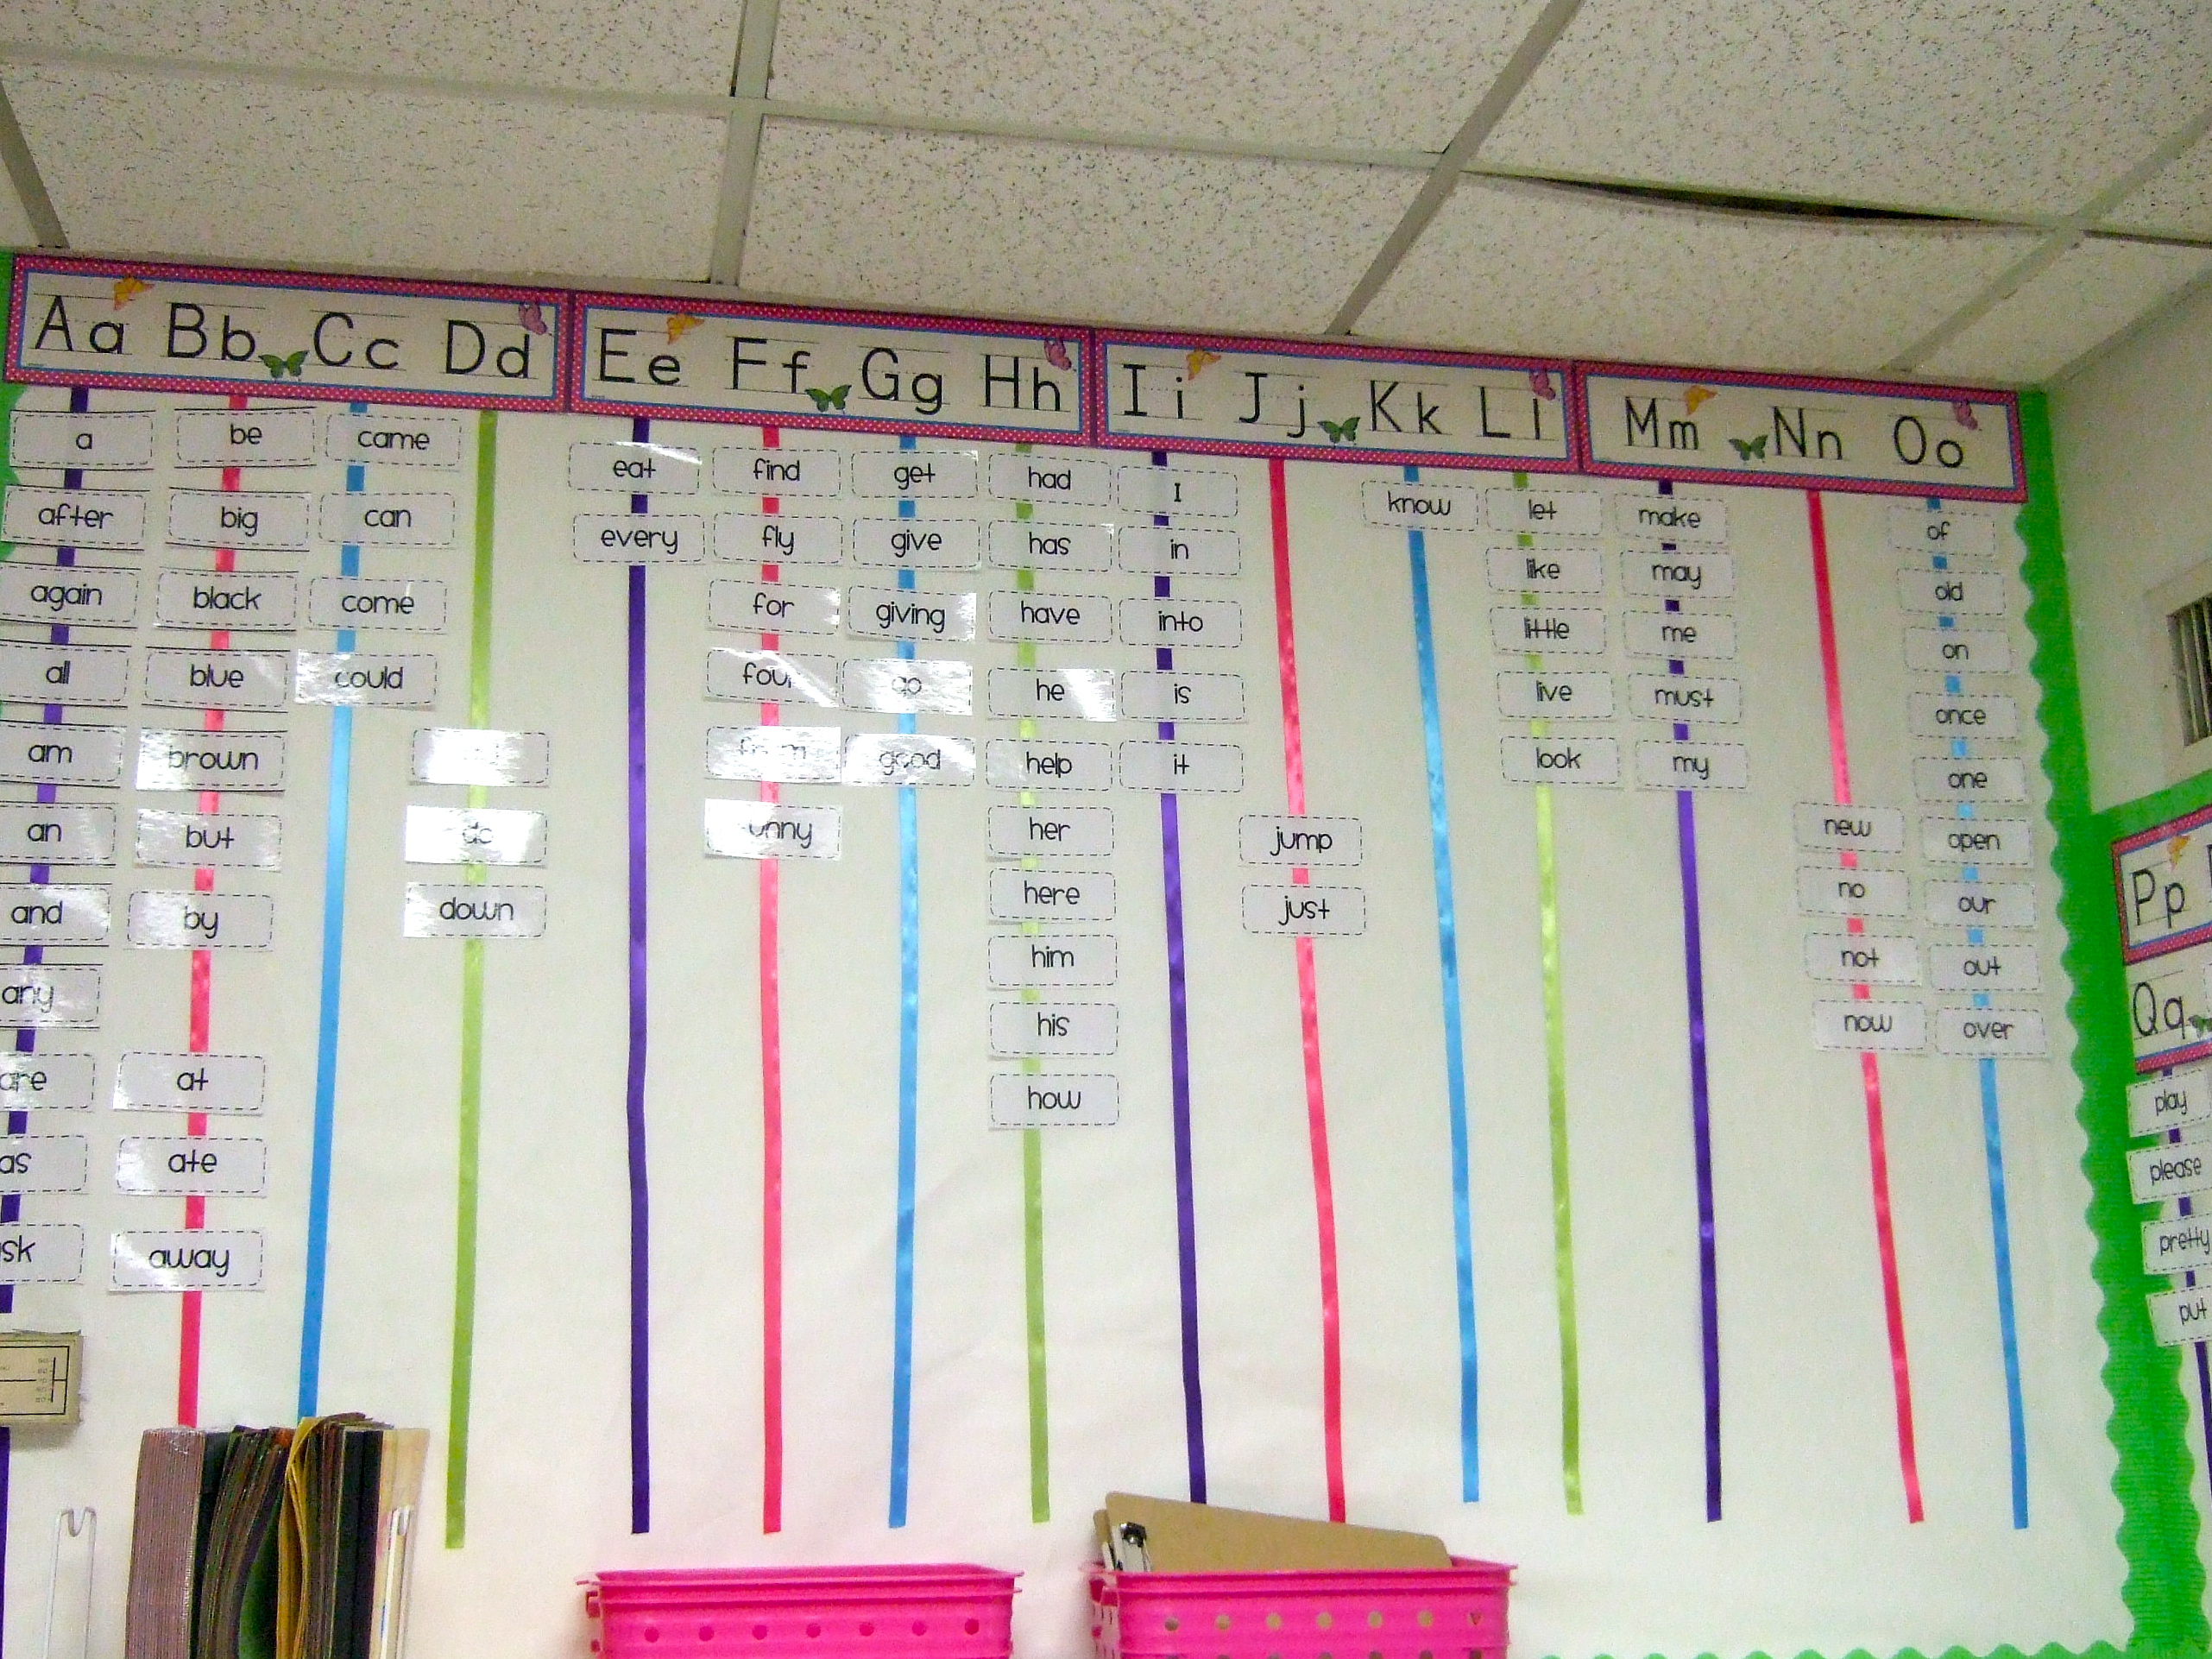 Aa Bb Cc Dd
Ee Ff Gg Hh
Ii Jj Kk Ll
Mm Nn Oo
a
after
again
all
am
an
and
any
are
as
be
big
black
blue
brown
but
by
at
ate
away
came
can
come
could
do
down
eat
every
find
fly
for
four
funny
get
give
giving
go
good
had
has
have
he
help
her
here
him
his
how
I
in
into
is
it
jump
just
know
let
like
little
live
look
make
may
me
must
my
new
no
not
now
of
old
on
once
one
open
our
out
over
Pp
Qq
play
please
pretty
put